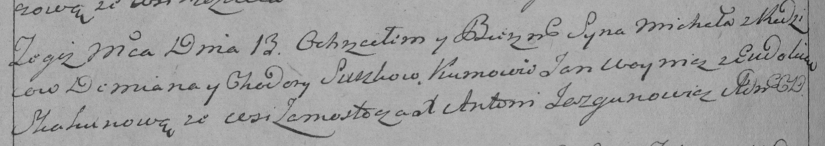 Tegiż Mca Dnia 13. Ochrzciłem y Bierzm Syna Michała z Rodzi
cow Demiana y Chodory Suszkow. Kumowie Jan Woynicz z Eudokią
Skakunową ze wsi Zamostocza Antoni Jazgunowicz